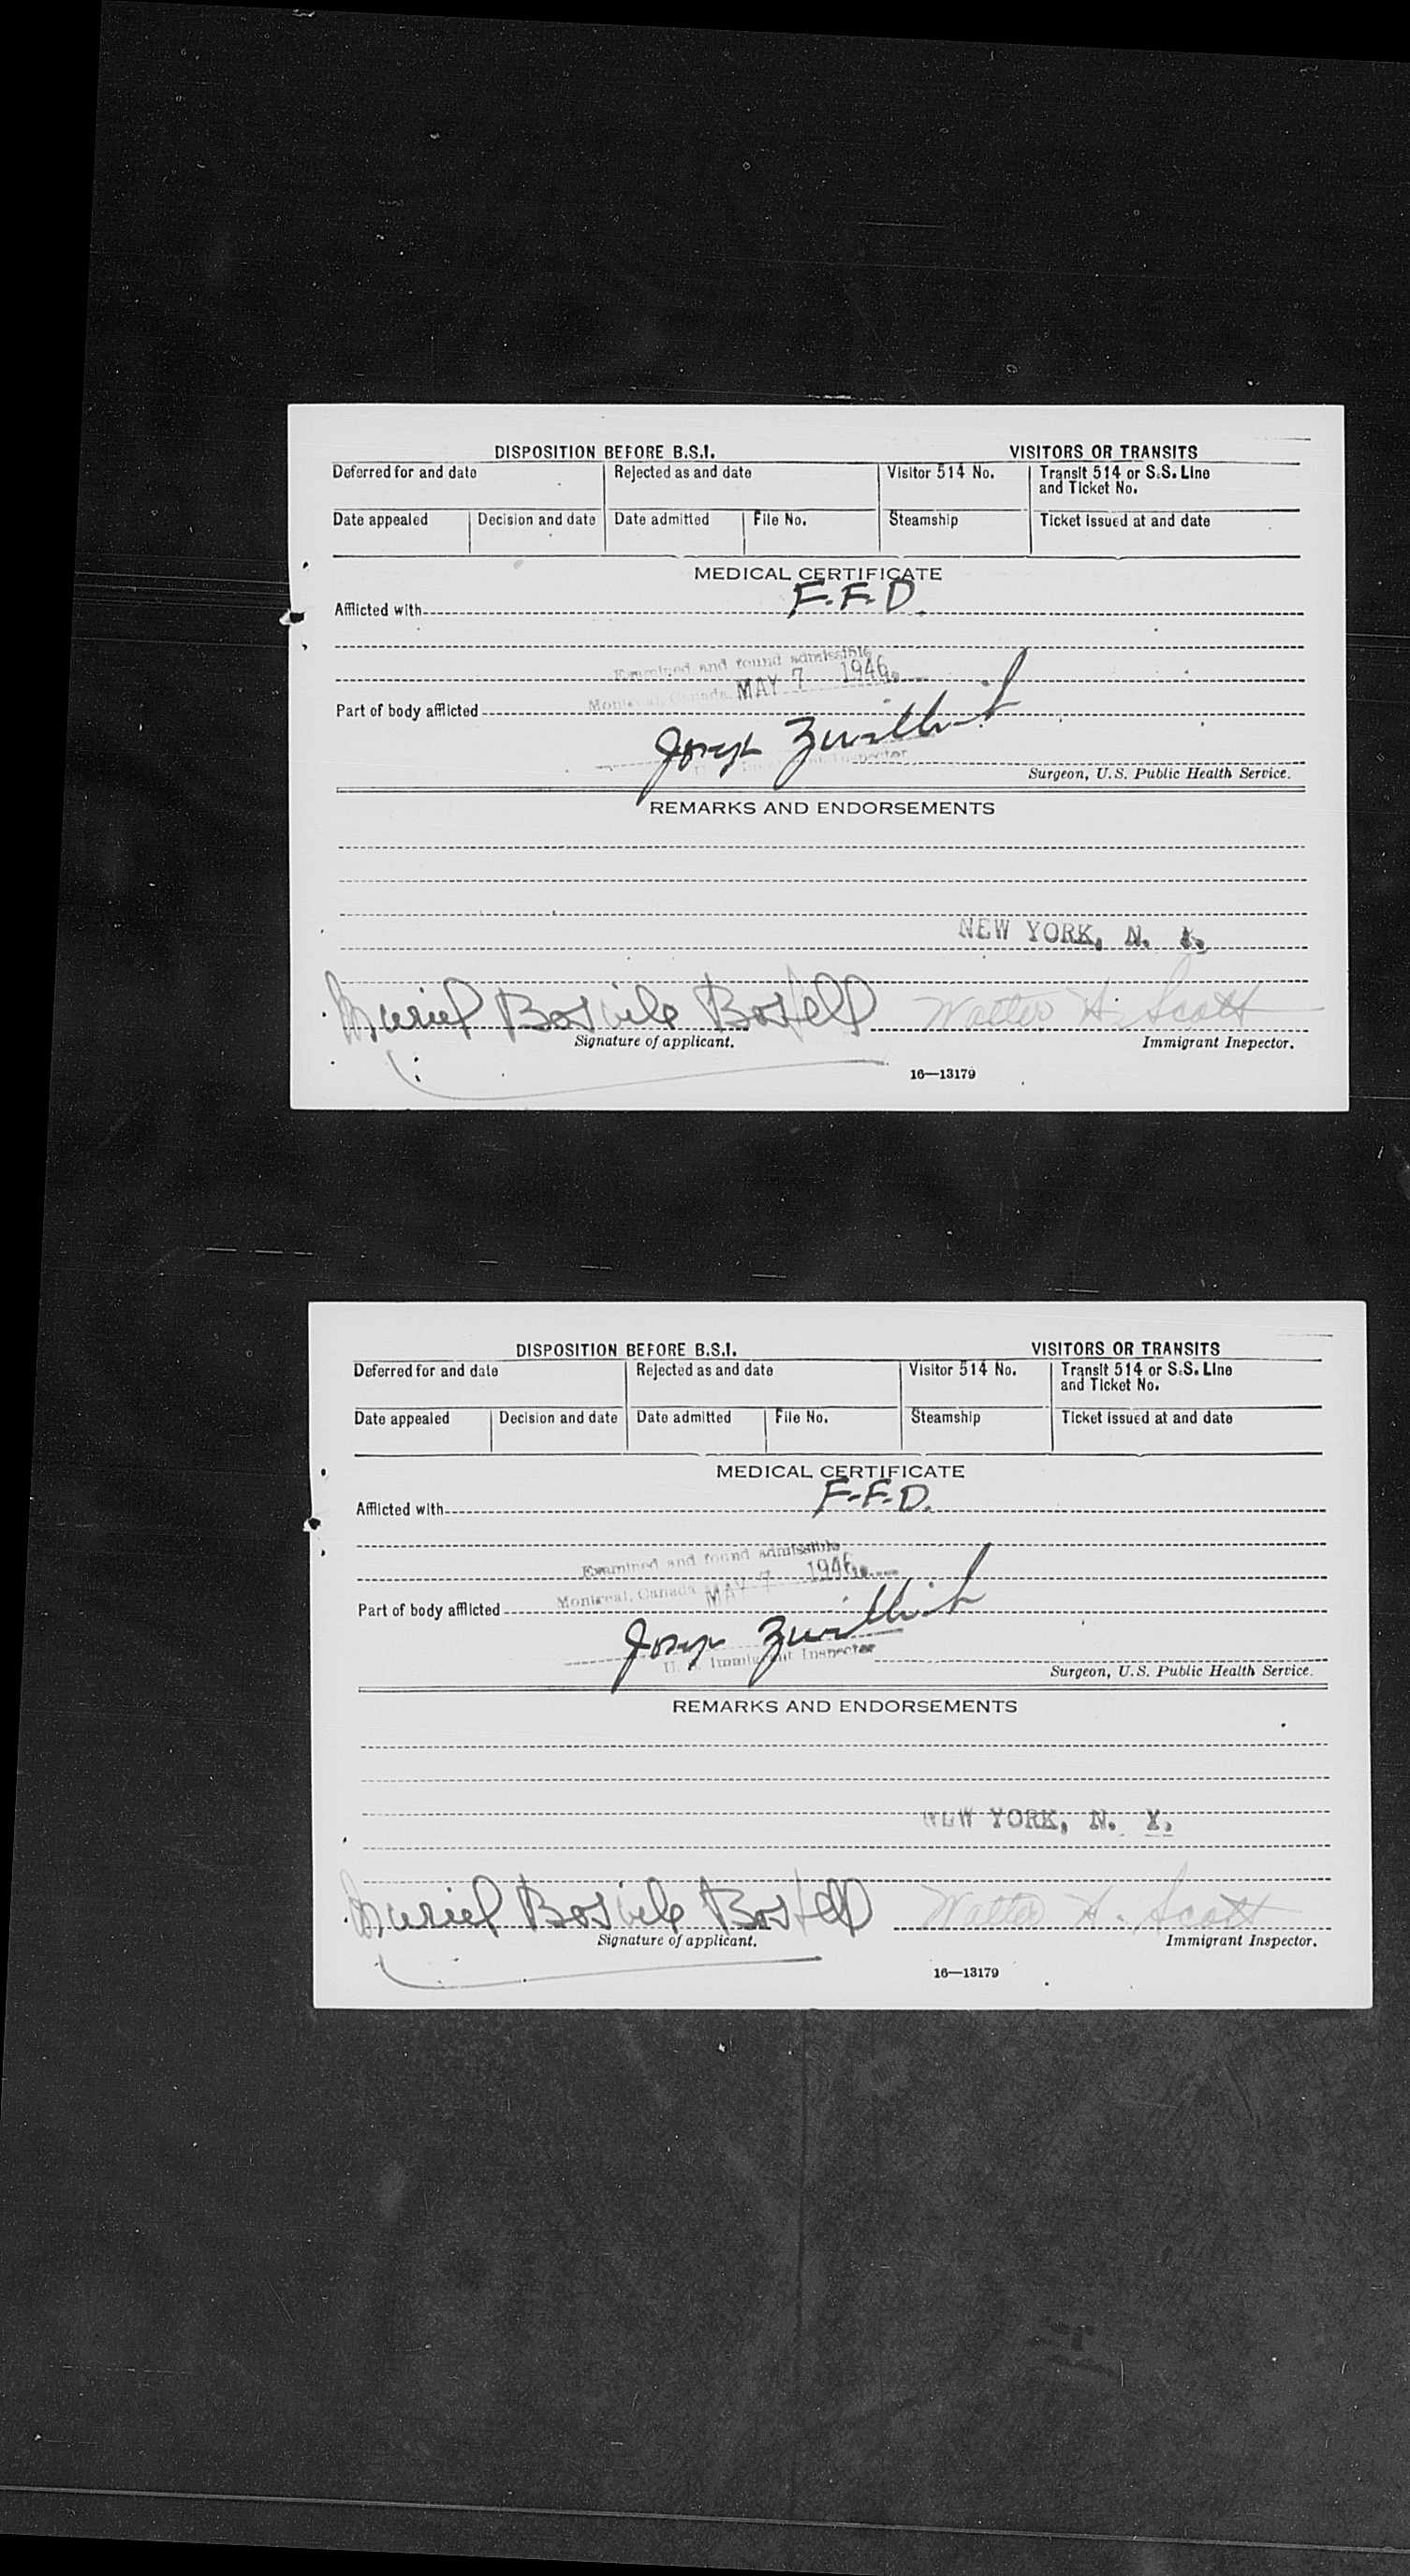 DISPOSITION BEFORE B.S.I. VISITORS OR TRANSITS
Deferred for and date Rejected as and date Visitor 514 No. Transit 514 or S.S. Line and Ticket No.
Date appealed Decision and date Date admitted File No. Steamship Ticket issued at and date
MEDICAL CERTIFICATE
Afflicted with F.F.D.
Examined and found admissible
Montreal, Canada MAY 7 1946
Part of body afflicted
Inspector
Surgeon, U.S. Public Health Service.
REMARKS AND ENDORSEMENTS
NEW YORK, N. Y.
Muriel Bosvile Bostell Walter H. Scott
Signature of applicant. Immigrant Inspector.
16—13179
DISPOSITION BEFORE B.S.I. VISITORS OR TRANSITS
Deferred for and date Rejected as and date Visitor 514 No. Transit 514 or S.S. Line and Ticket No.
Date appealed Decision and date Date admitted File No. Steamship Ticket issued at and date
MEDICAL CERTIFICATE
Afflicted with F.F.D.
Examined and found admissible
Montreal, Canada MAY 7 1946
Part of body afflicted
U. S. Immigrant Inspector
Surgeon, U.S. Public Health Service.
REMARKS AND ENDORSEMENTS
NEW YORK, N. Y.
Muriel Bosvile Bostell Walter H. Scott
Signature of applicant. Immigrant Inspector.
16—13179